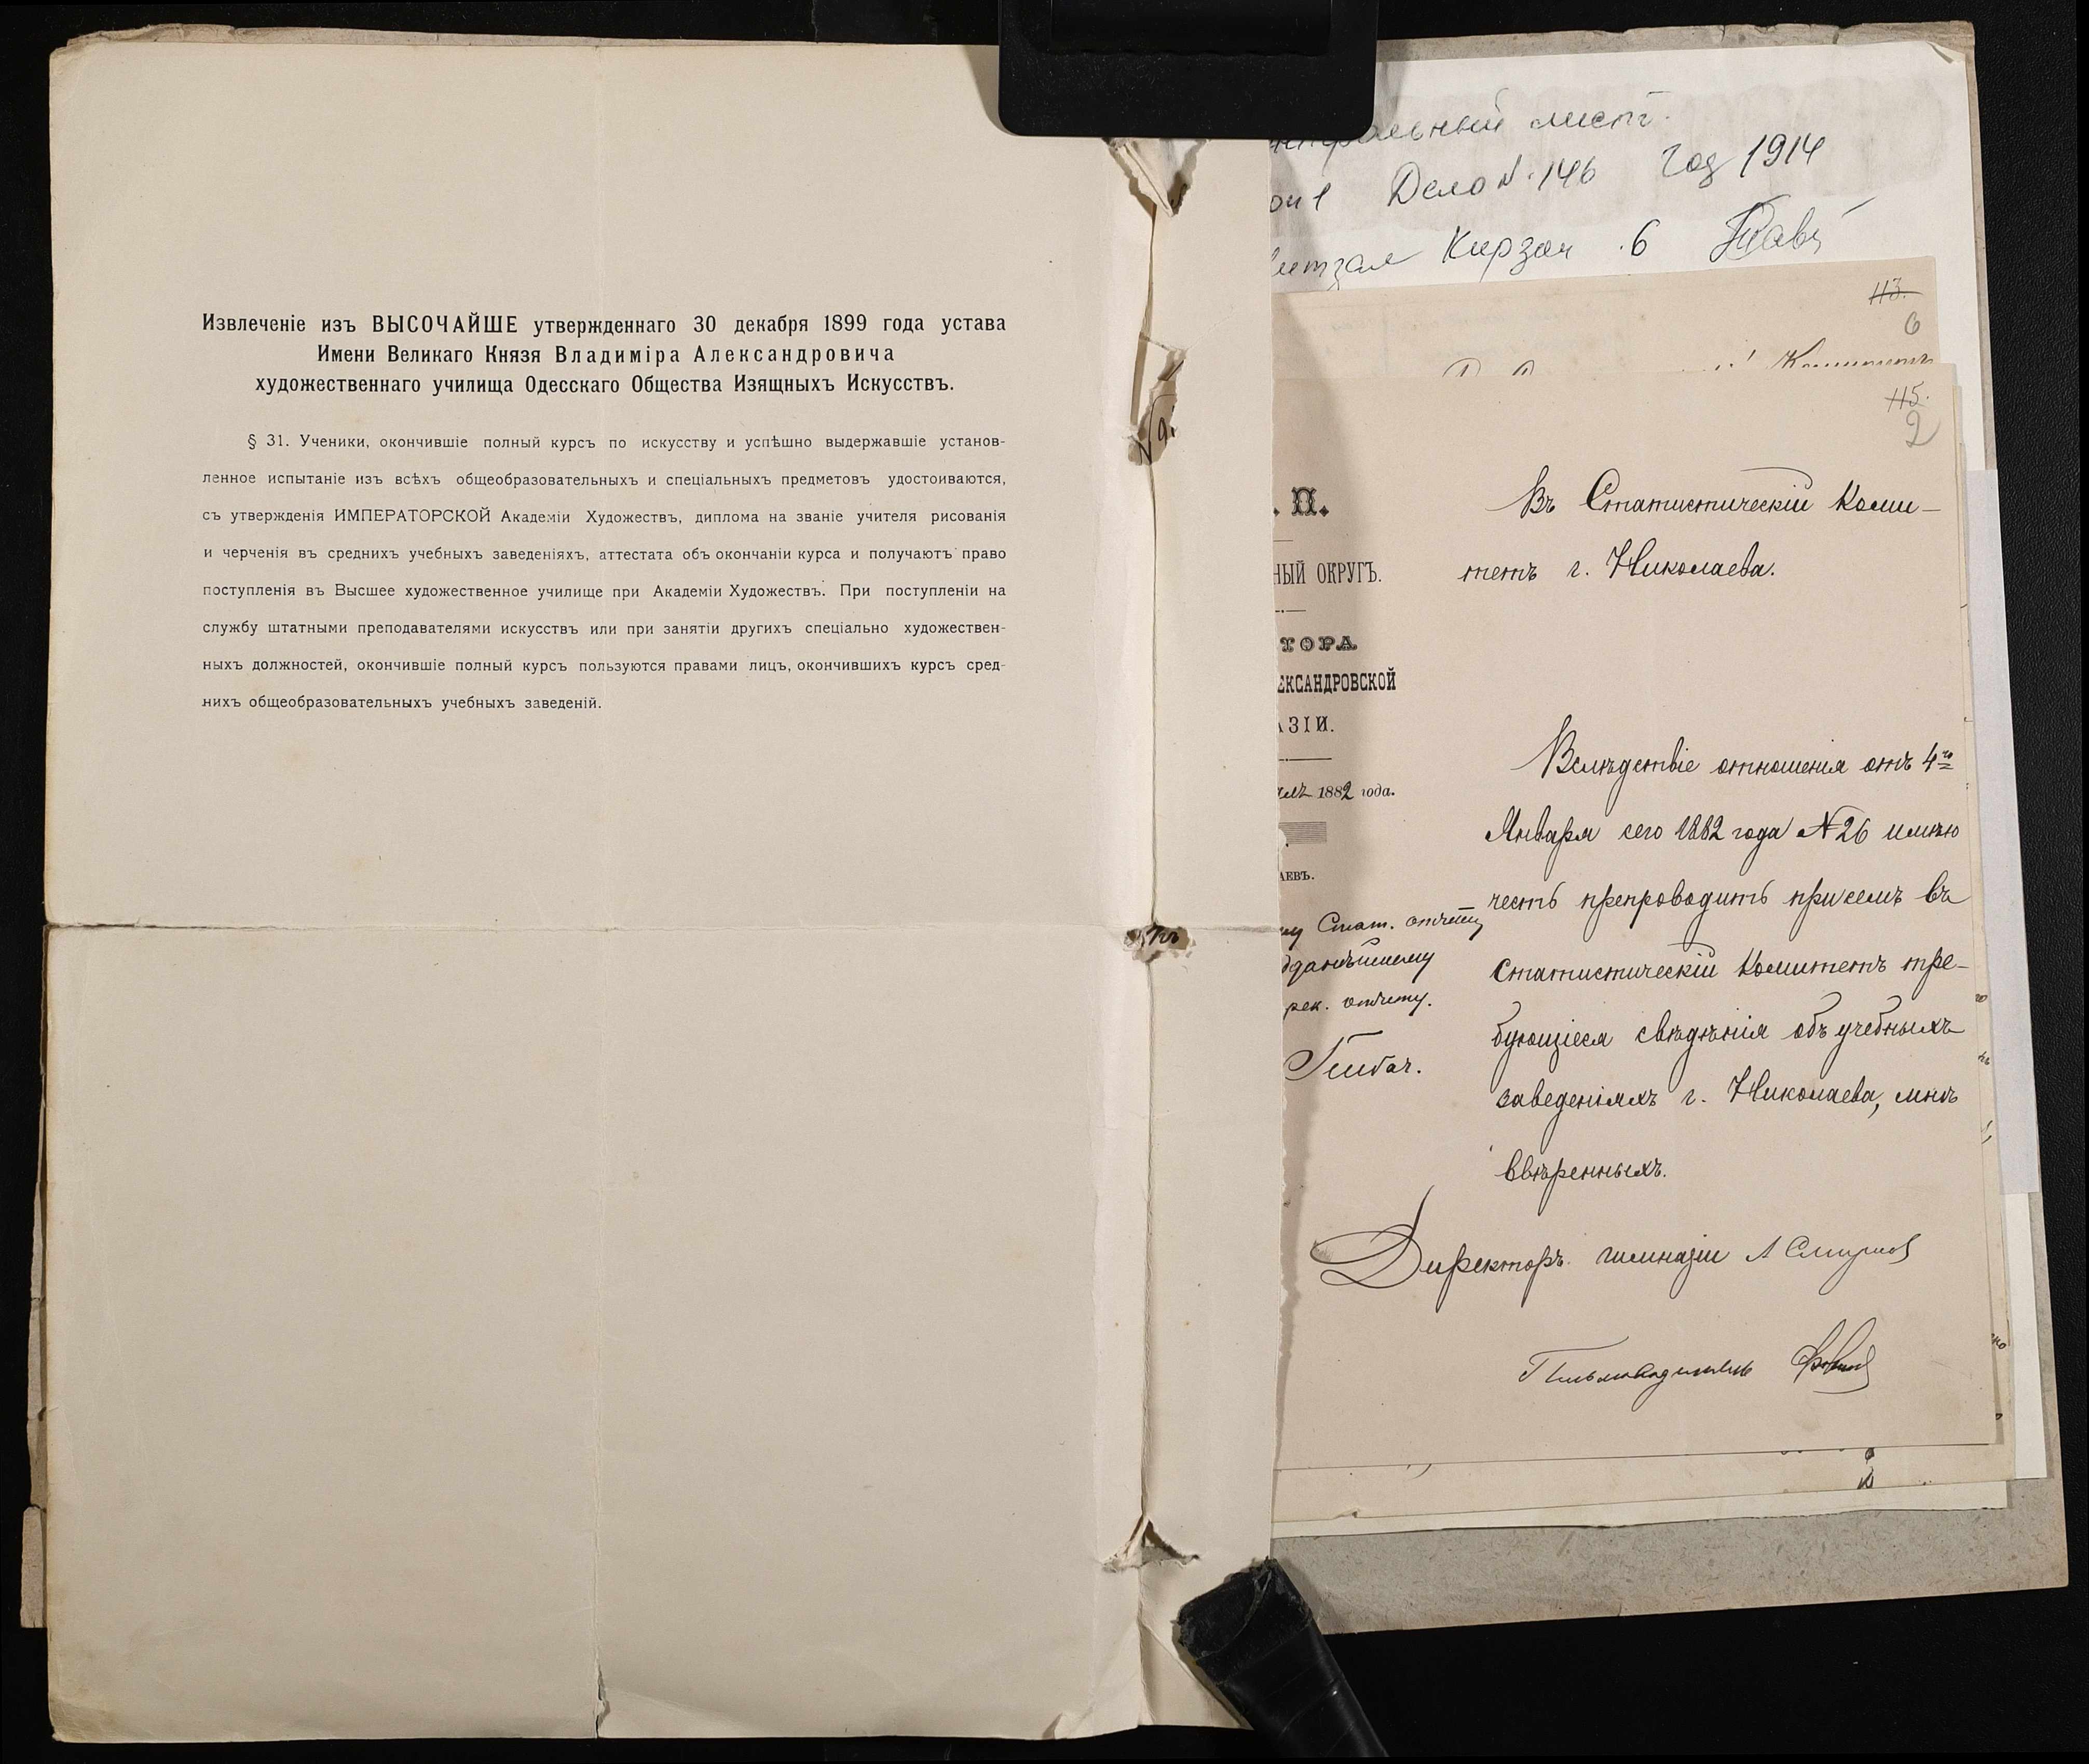 Извлеченіе изъ ВЫСОЧАЙШЕ утвержденнаго 30 декабря 1899 года устава
Имени Великаго Князя Владиміра Александровича
художественнаго училища Одесскаго Общества Изящныхъ Искусствъ.
§ 31. Ученики, окончившіе полный курсъ по искусству и успѣшно выдержавшіе установ-
ленное испытаніе изъ всѣхъ общеобразовательныхъ и спеціальныхъ предметовъ удостоиваются,
съ утвержденія ИМПЕРАТОРСКОЙ Академіи Художествъ, диплома на званіе учителя рисованія
и черченія въ среднихъ учебныхъ заведеніяхъ, аттестата объ окончаніи курса и получаютъ право
поступленія въ Высшее художественное училище при Академіи Художествъ. При поступленіи на
службу штатными преподавателями искусствъ или при занятіи другихъ спеціально художествен-
ныхъ должностей, окончившіе полный курсъ пользуются правами лицъ, окончившихъ курсъ сред-
нихъ общеобразовательныхъ учебныхъ заведеній.
альный лист.
Дело №. 146 Год 1914
6
113.
6
Комитетъ
115.
2
. П.
НЫЙ ОКРУГЪ.
ТОРА
ЕКСАНДРОВСКОЙ
АЗІИ.
1882 года.
АЕВЪ.
Стат. отчету
дданнѣйшему
рек. отчету.
Въ Статистическій Коми-
тетъ г. Николаева.
Вслѣдствіе отношенія отъ 4го
Января сего 1882 года № 26 имѣю
честь препроводить при семъ въ
Статистическій Комитетъ тре-
бующіеся свѣдѣнія объ учебныхъ
заведеніяхъ г. Николаева, мнѣ
ввѣренныхъ.
Директоръ гимназіи
Письмоводитель